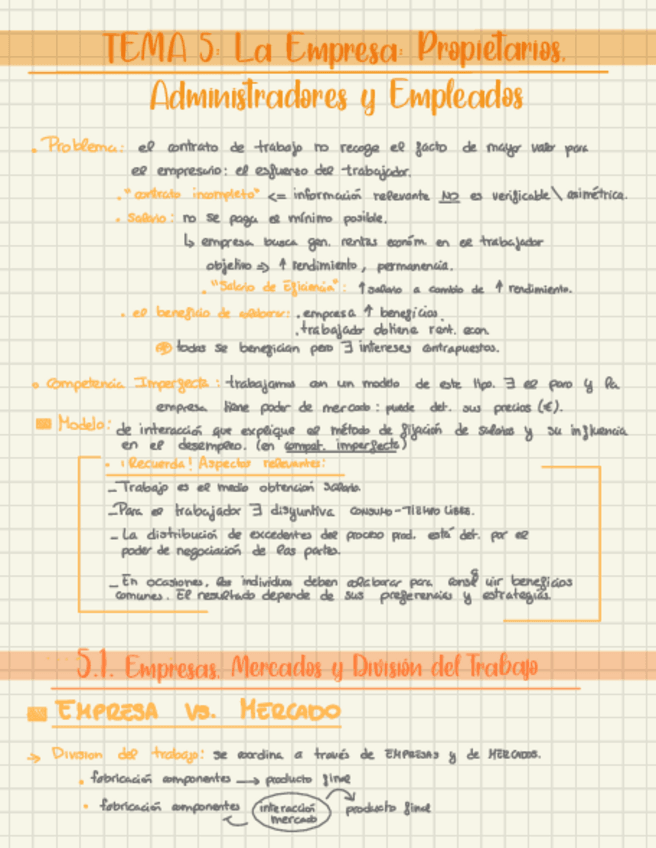 TEMA 5: La Empresa: Propietarios,
Administradores y Empleados
. Problema: el contrato de trabajo no recoge el facto de mayor valor para
el empresario: el esfuerzo del trabajador.
. "contrato incompleto" <= información relevante NO es verificable \ asimétrica.
. Salario: no se paga el mínimo posible.
↳ empresa busca gen. rentas económ. en el trabajador
objetivo => ↑ rendimiento, permanencia.
. "Salario de Eficiencia": ↑ salario a cambio de ↑ rendimiento.
. el beneficio de colaborar: . empresa ↑ beneficios.
. trabajador obtiene rent. econ.
todos se benefician pero ∃ intereses contrapuestos.
. Competencia Imperfecta: trabajamos con un modelo de este tipo. ∃ el paro y la
empresa tiene poder de mercado: puede det. sus precios (€).
Modelo: de interacción que explique el método de fijación de salarios y su influencia
en el desempleo. (en compet. imperfecta)
. ¡Recuerda! Aspectos relevantes:
- Trabajo es el medio obtención salario
- Para el trabajador ∃ disyuntiva CONSUMO-TIEMPO LIBRE.
- La distribución de excedentes del proceso prod. está det. por el
poder de negociación de las partes.
- En ocasiones, los individuos deben colaborar para conseguir beneficios
comunes. El resultado depende de sus preferencias y estrategias.
5.1. Empresas, Mercados y División del Trabajo
EMPRESA VS. MERCADO
→ Division del trabajo: se coordina a través de EMPRESAS y de MERCADOS.
. fabricación componentes → producto final
. fabricación componentes interacción mercado producto final